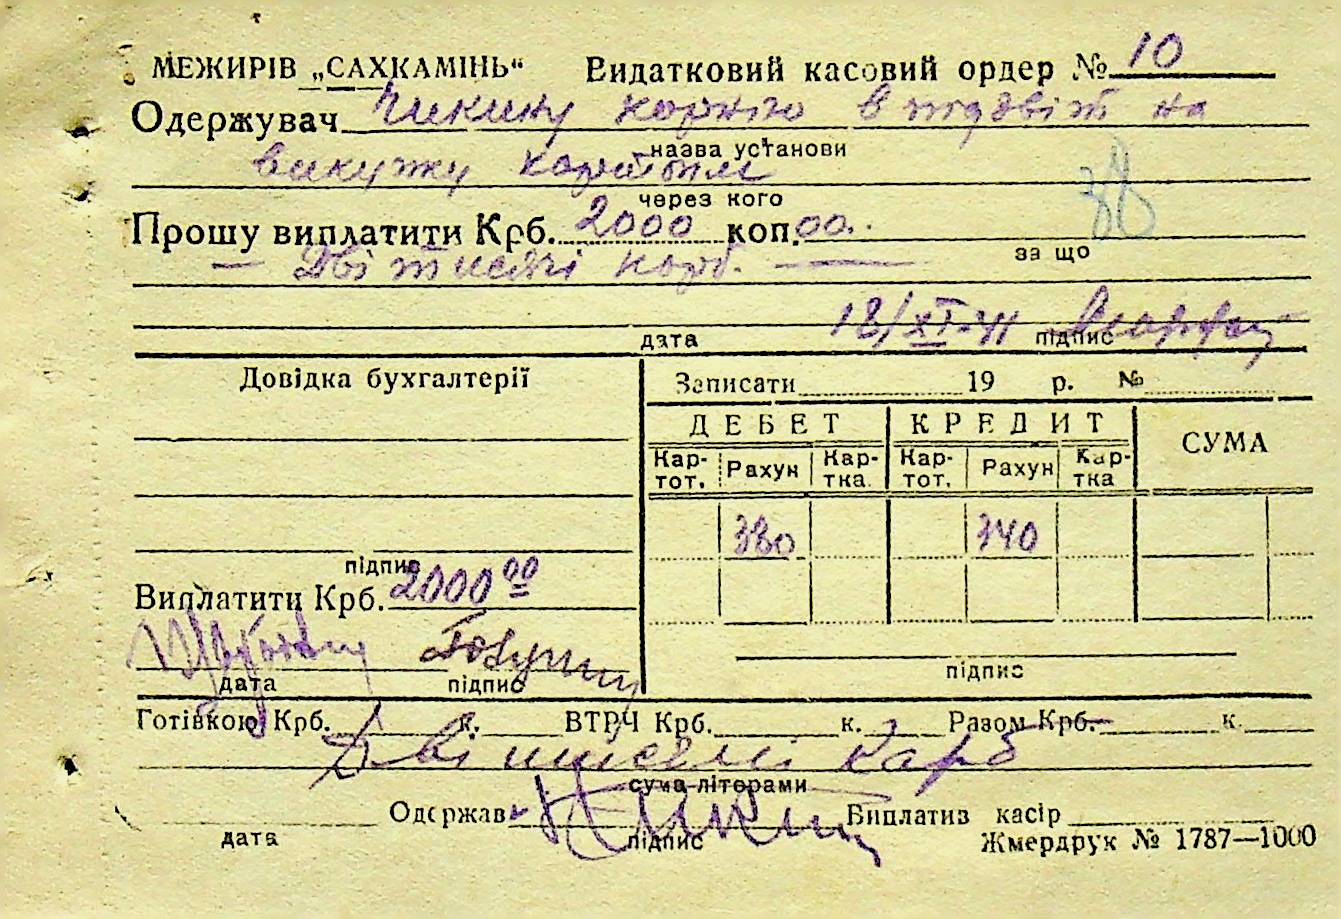 МЕЖИРІВ „САХКАМІНЬ“ Видатковий касовий ордер № 10
Одержувач Чикину Корнію в підзвіт на
назва установи
викупку
через кого
Прошу виплатити Крб. 2000 коп. 00
за що
— Дві тисячі карб. —
18/XI-41
дата підпис
Довідка бухгалтерії
Записати 19 р. №
ДЕБЕТ КРЕДИТ СУМА
Кар-тот. Рахун Кар-тка Кар-тот. Рахун Кар-тка
380 340
підпис
Виплатити Крб. 2000 00
дата підпис
підпис
Готівкою Крб. к. ВТРЧ Крб. к. Разом Крб. к.
Дві тисячі карб
сума літерами
Одержав Виплатив касір
дата підпис
Жмердрук № 1787—1000